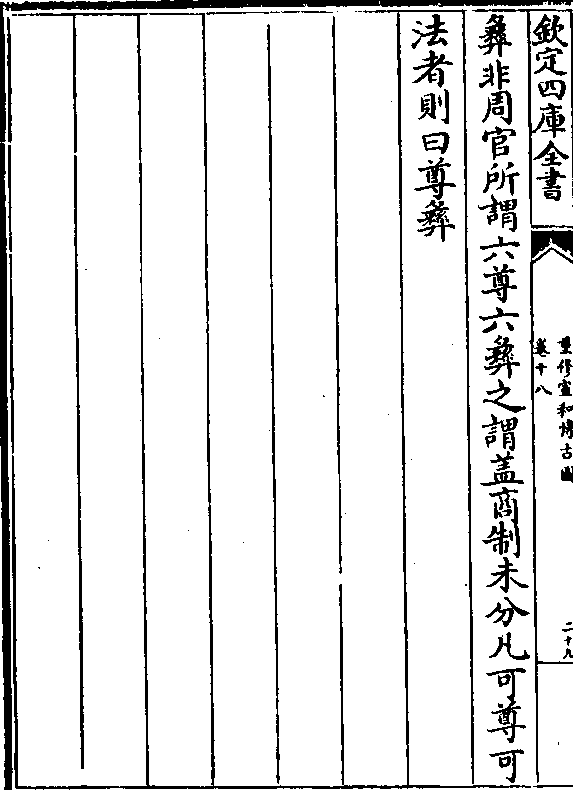 欽定四庫全書
重修宣和博古圖
卷十八
二十九
彛非周官所謂六尊六彛之謂葢商制未分凡可尊可
法者則曰尊彛